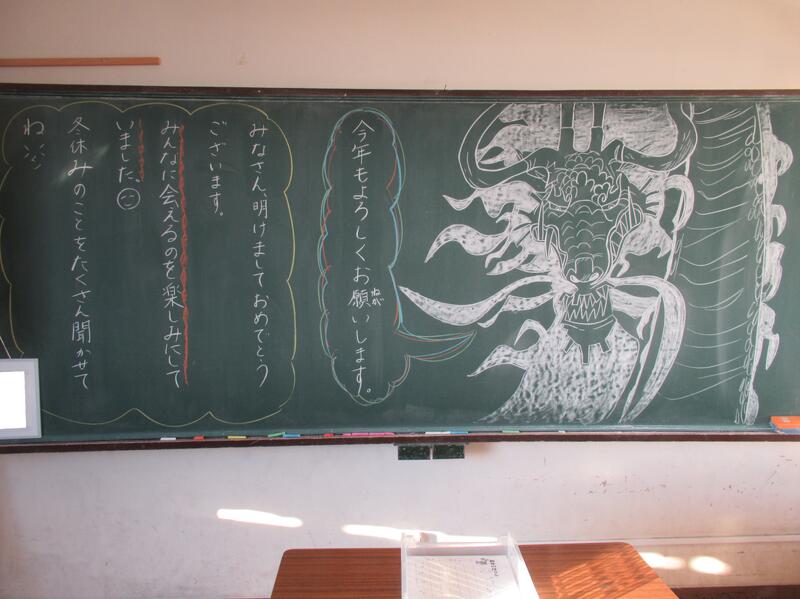 今年もよろしくお願いします。
ねが
みなさん、明けましておめでとう
ございます。
みんなに会えるのを楽しみにして
いました。
冬休みのことをたくさん聞かせて
ね